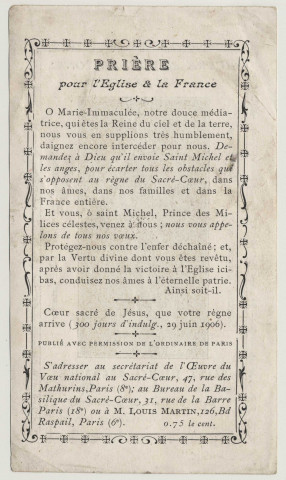 PRIÈRE
pour l'Eglise & la France
O Marie-Immaculée, notre douce média-
trice, qui êtes la Reine du ciel et de la terre,
nous vous en supplions très humblement,
daignez encore intercéder pour nous. De-
mandez à Dieu qu'il envoie Saint Michel et
les anges, pour écarter tous les obstacles qui
s'opposent au règne du Sacré-Cœur, dans
nos âmes, dans nos familles et dans la
France entière.
Et vous, ô saint Michel, Prince des Mi-
lices célestes, venez à nous ; nous vous appe-
lons de tous nos vœux.
Protégez-nous contre l'enfer déchaîné ; et,
par la Vertu divine dont vous êtes revêtu,
après avoir donné la victoire à l'Eglise ici-
bas, conduisez nos âmes à l'éternelle patrie.
Ainsi soit-il.
Cœur sacré de Jésus, que votre règne
arrive (300 jours d'indulg., 29 juin 1906).
PUBLIÉ AVEC PERMISSION DE L'ORDINAIRE DE PARIS
S'adresser au secrétariat de l'Œuvre du
Vœu national au Sacré-Cœur, 47, rue des
Mathurins, Paris (8e); au Bureau de la Ba-
silique du Sacré-Cœur, 31, rue de la Barre
Paris (18e) ou à M. LOUIS MARTIN, 126, Bd
Raspail, Paris (6e). 0.75 le cent.